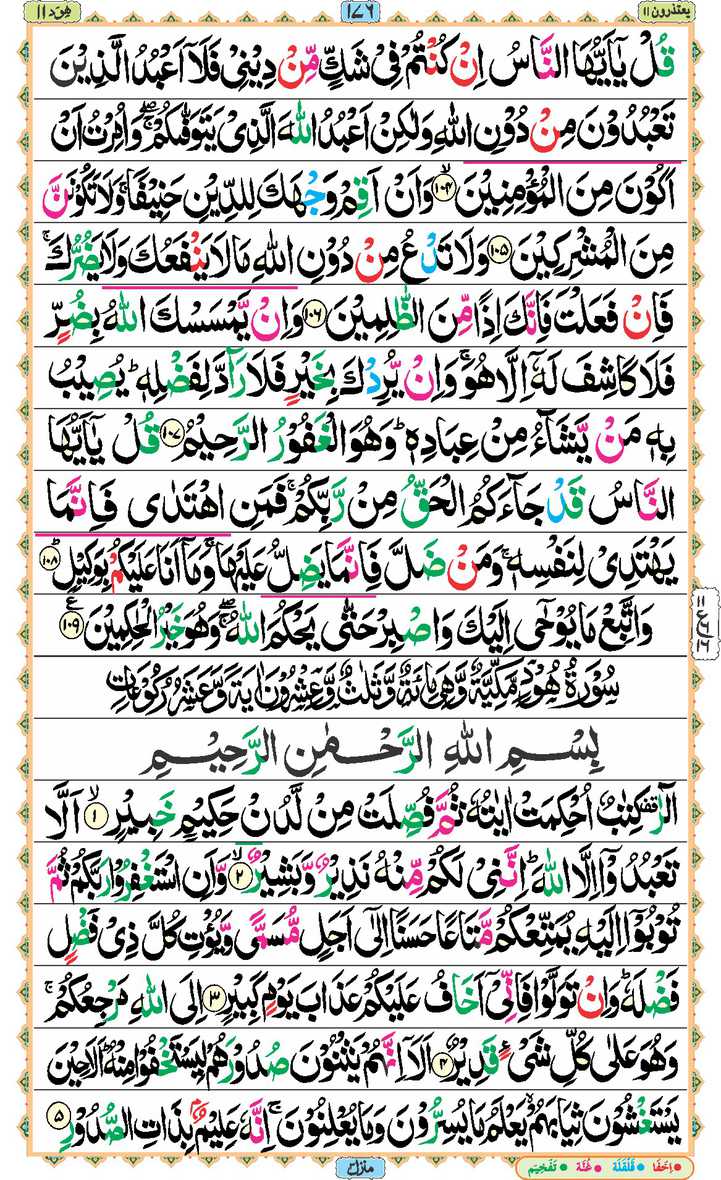 يعتذرون ١١
١٧٦
هود ١١
قُلْ يٰۤاَيُّهَا النَّاسُ اِنْ كُنْتُمْ فِیْ شَكٍّ مِّنْ دِیْنِیْ فَلَاۤ اَعْبُدُ الَّذِیْنَ
تَعْبُدُوْنَ مِنْ دُوْنِ اللّٰهِ وَلٰكِنْ اَعْبُدُ اللّٰهَ الَّذِیْ یَتَوَفّٰىكُمْ ۖۚ وَاُمِرْتُ اَنْ
اَكُوْنَ مِنَ الْمُؤْمِنِیْنَ ۙ‏﴿۱۰۴﴾ وَاَنْ اَقِمْ وَجْهَكَ لِلدِّیْنِ حَنِیْفًا ۚ وَلَا تَكُوْنَنَّ
مِنَ الْمُشْرِكِیْنَ ﴿۱۰۵﴾ وَلَا تَدْعُ مِنْ دُوْنِ اللّٰهِ مَا لَا یَنْفَعُكَ وَلَا یَضُرُّكَ ۚ
فَاِنْ فَعَلْتَ فَاِنَّكَ اِذًا مِّنَ الظّٰلِمِیْنَ ﴿۱۰۶﴾ وَاِنْ یَّمْسَسْكَ اللّٰهُ بِضُرٍّ
فَلَا كَاشِفَ لَهٗۤ اِلَّا هُوَ ۚ وَاِنْ یُّرِدْكَ بِخَیْرٍ فَلَا رَآدَّ لِفَضْلِهٖ ؕ یُصِیْبُ
بِهٖ مَنْ یَّشَآءُ مِنْ عِبَادِهٖ ؕ وَهُوَ الْغَفُوْرُ الرَّحِیْمُ ﴿۱۰۷﴾ قُلْ یٰۤاَیُّهَا
النَّاسُ قَدْ جَآءَكُمُ الْحَقُّ مِنْ رَّبِّكُمْ ۚ فَمَنِ اهْتَدٰی فَاِنَّمَا
یَهْتَدِیْ لِنَفْسِهٖ ۚ وَمَنْ ضَلَّ فَاِنَّمَا یَضِلُّ عَلَیْهَا ۚ وَمَاۤ اَنَا عَلَیْكُمْ بِوَكِیْلٍ ؕ﴿۱۰۸﴾
وَاتَّبِعْ مَا یُوْحٰۤی اِلَیْكَ وَاصْبِرْ حَتّٰی یَحْكُمَ اللّٰهُ ۖۚ وَهُوَ خَیْرُ الْحٰكِمِیْنَ ﴿۱۰۹﴾ ع
سُوْرَةُ هُوْدٍ مَّكِّیَّةٌ وَّهِیَ مِائَةٌ وَّثَلٰثٌ وَّعِشْرُوْنَ اٰیَةً وَّعَشْرُ رُكُوْعَاتٍ
بِسْمِ اللّٰهِ الرَّحْمٰنِ الرَّحِیْمِ
الٓرٰ ۟ كِتٰبٌ اُحْكِمَتْ اٰیٰتُهٗ ثُمَّ فُصِّلَتْ مِنْ لَّدُنْ حَكِیْمٍ خَبِیْرٍ ۙ﴿۱﴾ اَلَّا
تَعْبُدُوْۤا اِلَّا اللّٰهَ ؕ اِنَّنِیْ لَكُمْ مِّنْهُ نَذِیْرٌ وَّبَشِیْرٌ ۙ﴿۲﴾ وَّاَنِ اسْتَغْفِرُوْا رَبَّكُمْ ثُمَّ
تُوْبُوْۤا اِلَیْهِ یُمَتِّعْكُمْ مَّتَاعًا حَسَنًا اِلٰۤی اَجَلٍ مُّسَمًّی وَّیُؤْتِ كُلَّ ذِیْ فَضْلٍ
فَضْلَهٗ ؕ وَاِنْ تَوَلَّوْا فَاِنِّیْۤ اَخَافُ عَلَیْكُمْ عَذَابَ یَوْمٍ كَبِیْرٍ ﴿۳﴾ اِلَی اللّٰهِ مَرْجِعُكُمْ ۚ
وَهُوَ عَلٰی كُلِّ شَیْءٍ قَدِیْرٌ ﴿۴﴾ اَلَاۤ اِنَّهُمْ یَثْنُوْنَ صُدُوْرَهُمْ لِیَسْتَخْفُوْا مِنْهُ ؕ اَلَا حِیْنَ
یَسْتَغْشُوْنَ ثِیَابَهُمْ ۙ یَعْلَمُ مَا یُسِرُّوْنَ وَمَا یُعْلِنُوْنَ ۚ اِنَّهٗ عَلِیْمٌۢ بِذَاتِ الصُّدُوْرِ ﴿۵﴾
اِخفَا قَلْقَلَة غُنَّة تَفْخِیْم
منزل ۳